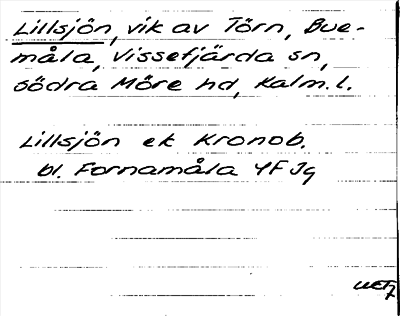 Lillsjön, vik av Törn, Bue-
måla, Vissefjärda sn,
södra Möre hd, Kalm. l.
Lillsjön ek Kronob.
bl. Fornamåla 4F Jg